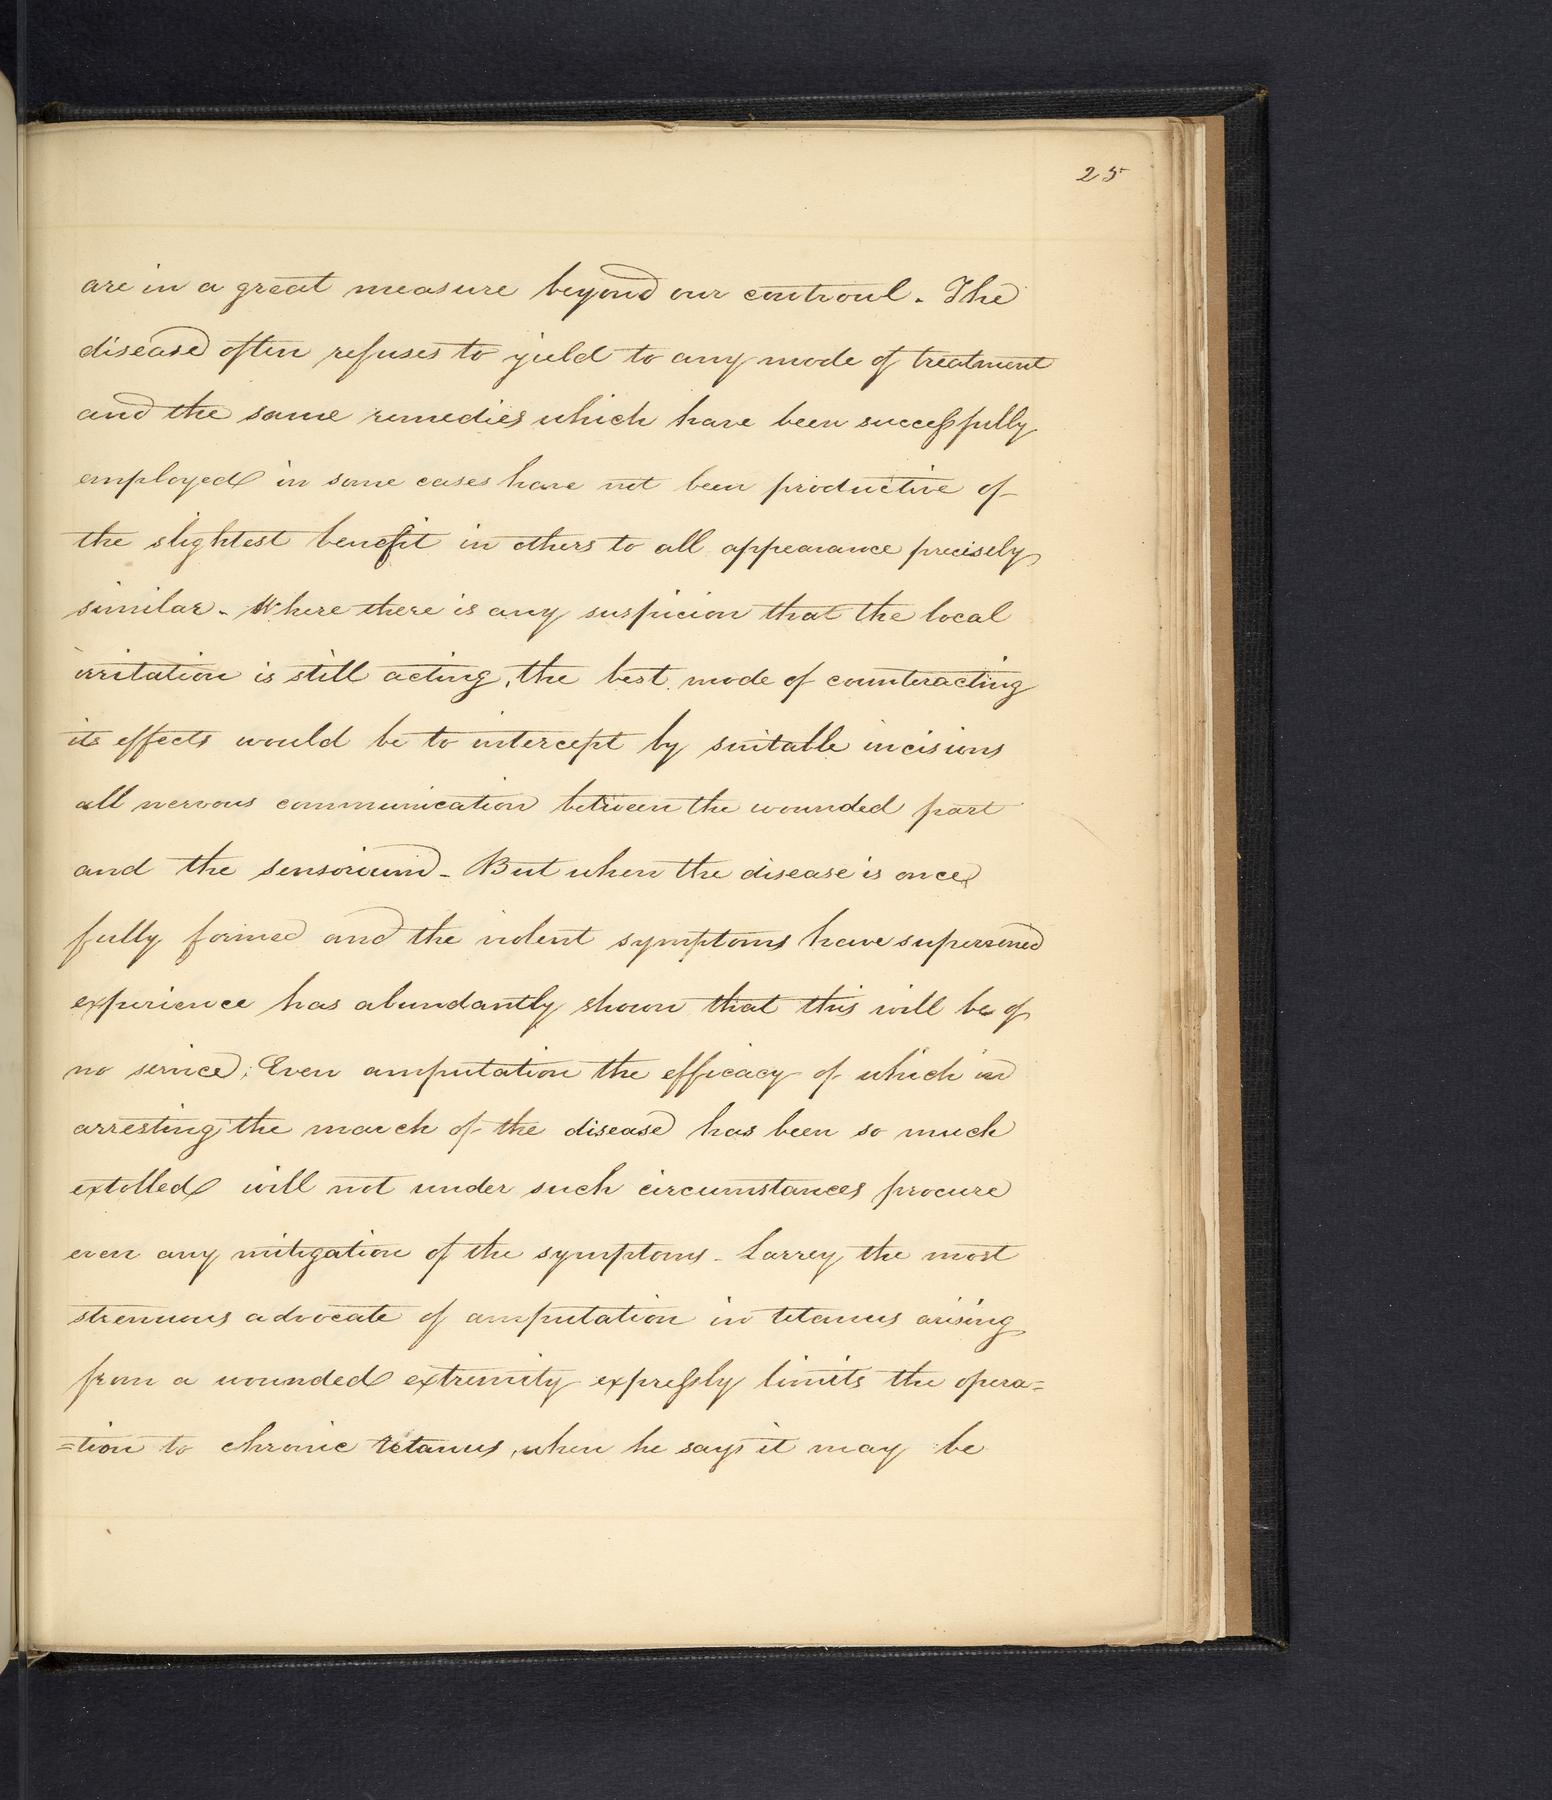 25
are in a great measure beyond our controul. The
disease often refuses to yield to any mode of treatment
and the same remedies which have been successfully
employed in some cases have not been productive of
the slightest benefit in others to all appearance precisely
similar. Where there is any suspicion that the local
irritation is still acting, the best mode of counteracting
its effects would be to intercept by suitable incisions
all nervous communication between the wounded part
and the sensorium. But when the disease is once
fully formed and the violent symptoms have supervened
experience has abundantly shown that this will be of
no service; Even amputation the efficacy of which in
arresting the march of the disease has been so much
extolled will not under such circumstances procure
even any mitigation of the symptoms. Larrey, the most
strenuous advocate of amputation in tetanus arising
from a wounded extremity expressly limits the opera=
=tion to chronic tetanus, when he says it may be